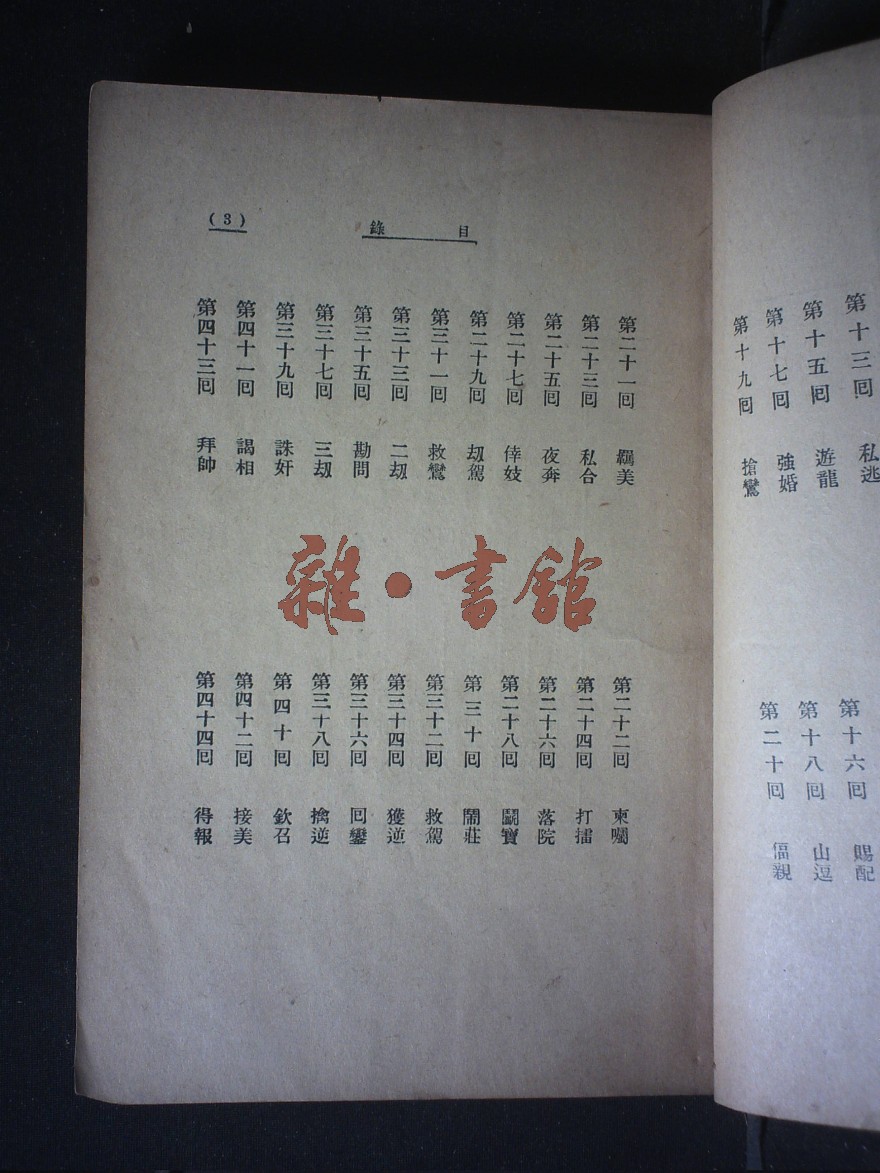 目錄
(3)
第二十一回 羈美
第二十三回 私合
第二十五回 夜奔
第二十七回 倖妓
第二十九回 刼駕
第三十一回 救鸞
第三十三回 二刼
第三十五回 勘問
第三十七回 三刼
第三十九回 誅奸
第四十一回 謁相
第四十三回 拜帥
第二十二回 柬囑
第二十四回 打擂
第二十六回 落院
第二十八回 鬭寶
第三十回 鬧莊
第三十二回 救駕
第三十四回 獲逆
第三十六回 回鑾
第三十八回 擒逆
第四十回 欽召
第四十二回 接美
第四十四回 得報
雜·書館
第十三回 私逃
第十五回 遊龍
第十七回 強婚
第十九回 搶鸞
第十六回 賜配
第十八回 山逗
第二十回 偪親